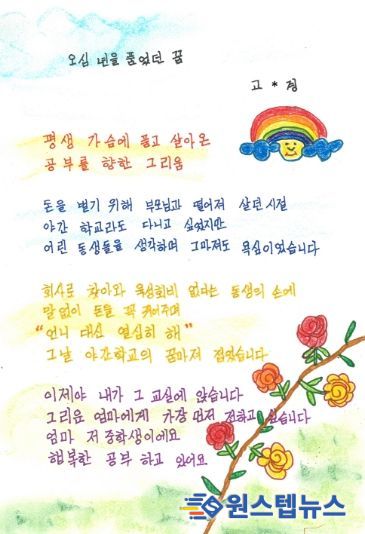 오십 년을 품었던 꿈
고 * 정
평생 가슴에 품고 살아온
공부를 향한 그리움
돈을 벌기 위해 부모님과 떨어져 살던 시절
야간 학교라도 다니고 싶었지만
어린 동생들을 생각하며 그마저도 욕심이었습니다
회사로 찾아와 육성회비 없다는 동생의 손에
말없이 돈을 꼭 쥐어주며
"언니 대신 열심히 해"
그날 야간학교의 꿈마저 접었습니다
이제야 내가 그 교실에 앉습니다
그리운 엄마에게 가장 먼저 전하고 싶습니다
엄마 저 중학생이에요
행복한 공부 하고 있어요
원스텝뉴스